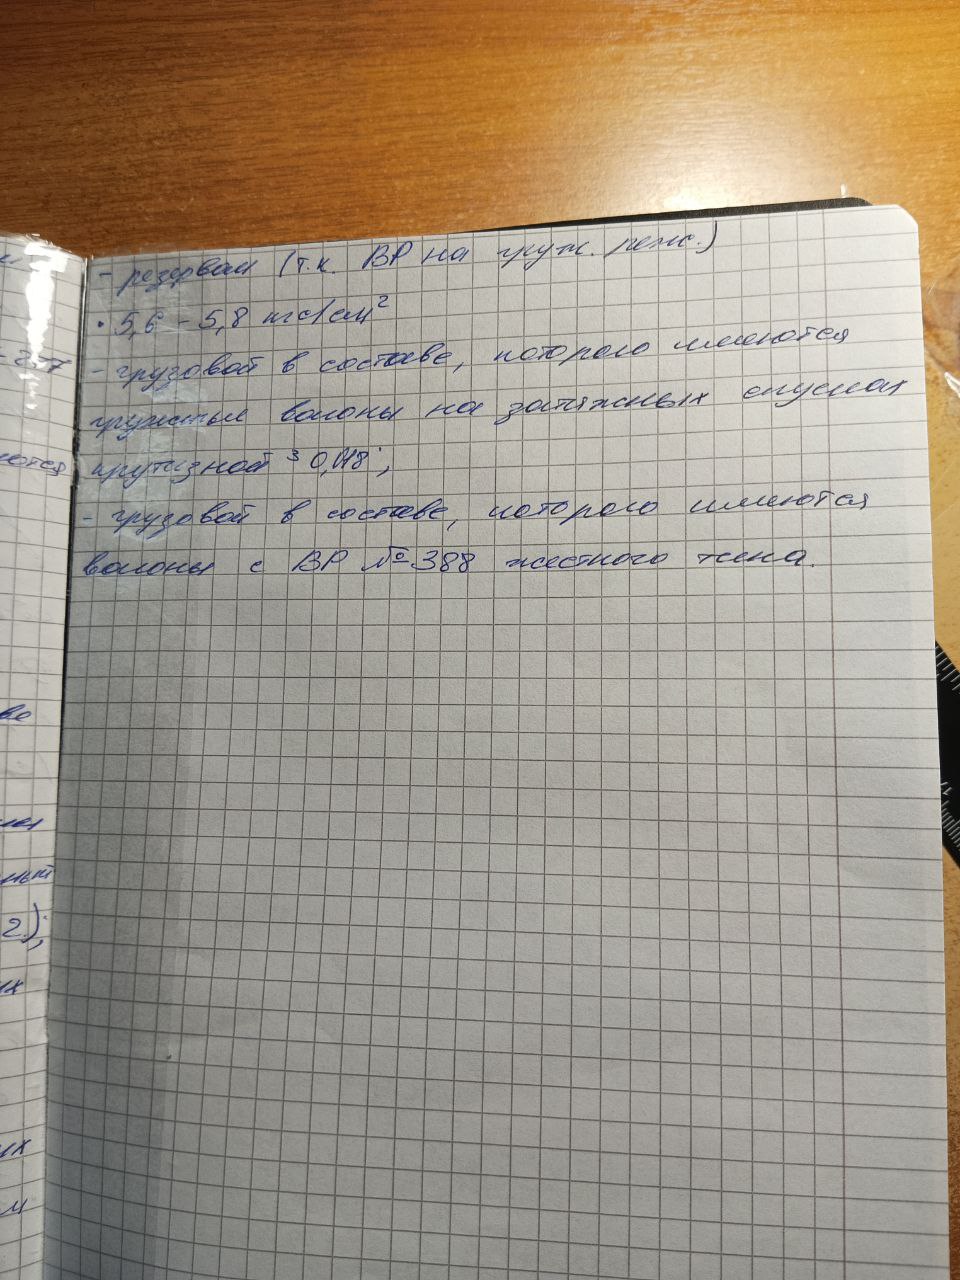 - резервам (т.к. ВР на груж. реж.)
• 5,6 - 5,8 кгс/см²
- грузовой в составе, которого имеются
груженые вагоны на затяжных спусках
крутизной ³ 0,018;
- грузовой в составе, которого имеются
вагоны с ВР №388 жесткого типа.
ве
ный
2.);
ых
м